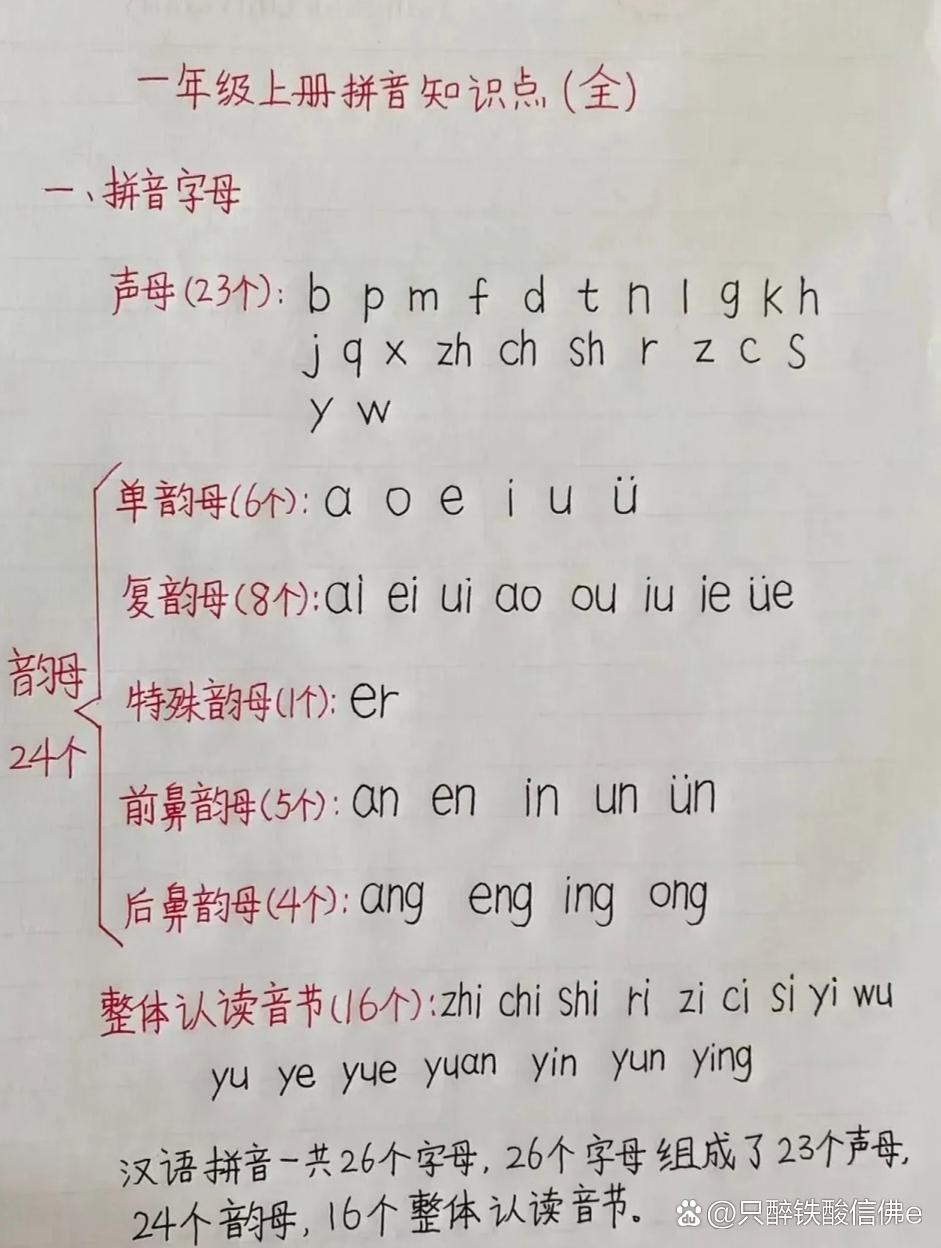 一年级上册拼音知识点(全)
一、拼音字母
声母(23个): b p m f d t n l g k h
j q x zh ch sh r z c s
y w
单韵母(6个): a o e i u ü
复韵母(8个): ai ei ui ao ou iu ie üe
韵母
24个
特殊韵母(1个): er
前鼻韵母(5个): an en in un ün
后鼻韵母(4个): ang eng ing ong
整体认读音节(16个): zhi chi shi ri zi ci si yi wu
yu ye yue yuan yin yun ying
汉语拼音一共26个字母,26个字母组成了23个声母,
24个韵母,16个整体认读音节。
@只醉铁酸信佛e